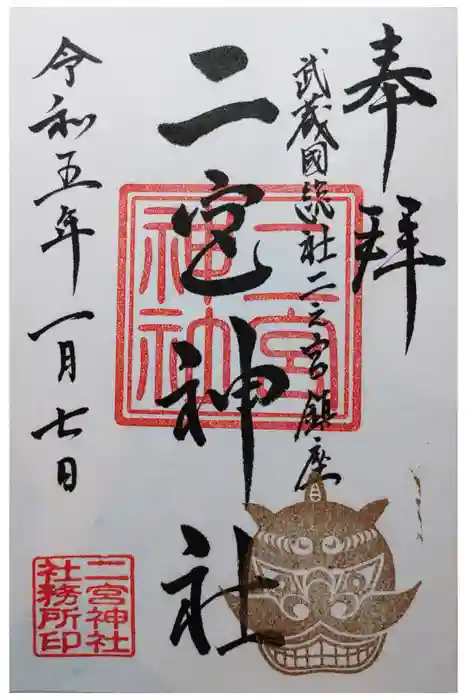 奉拝
武蔵國総社二之宮鎮座
二宮神社
令和五年一月七日
二宮神社
社務所印